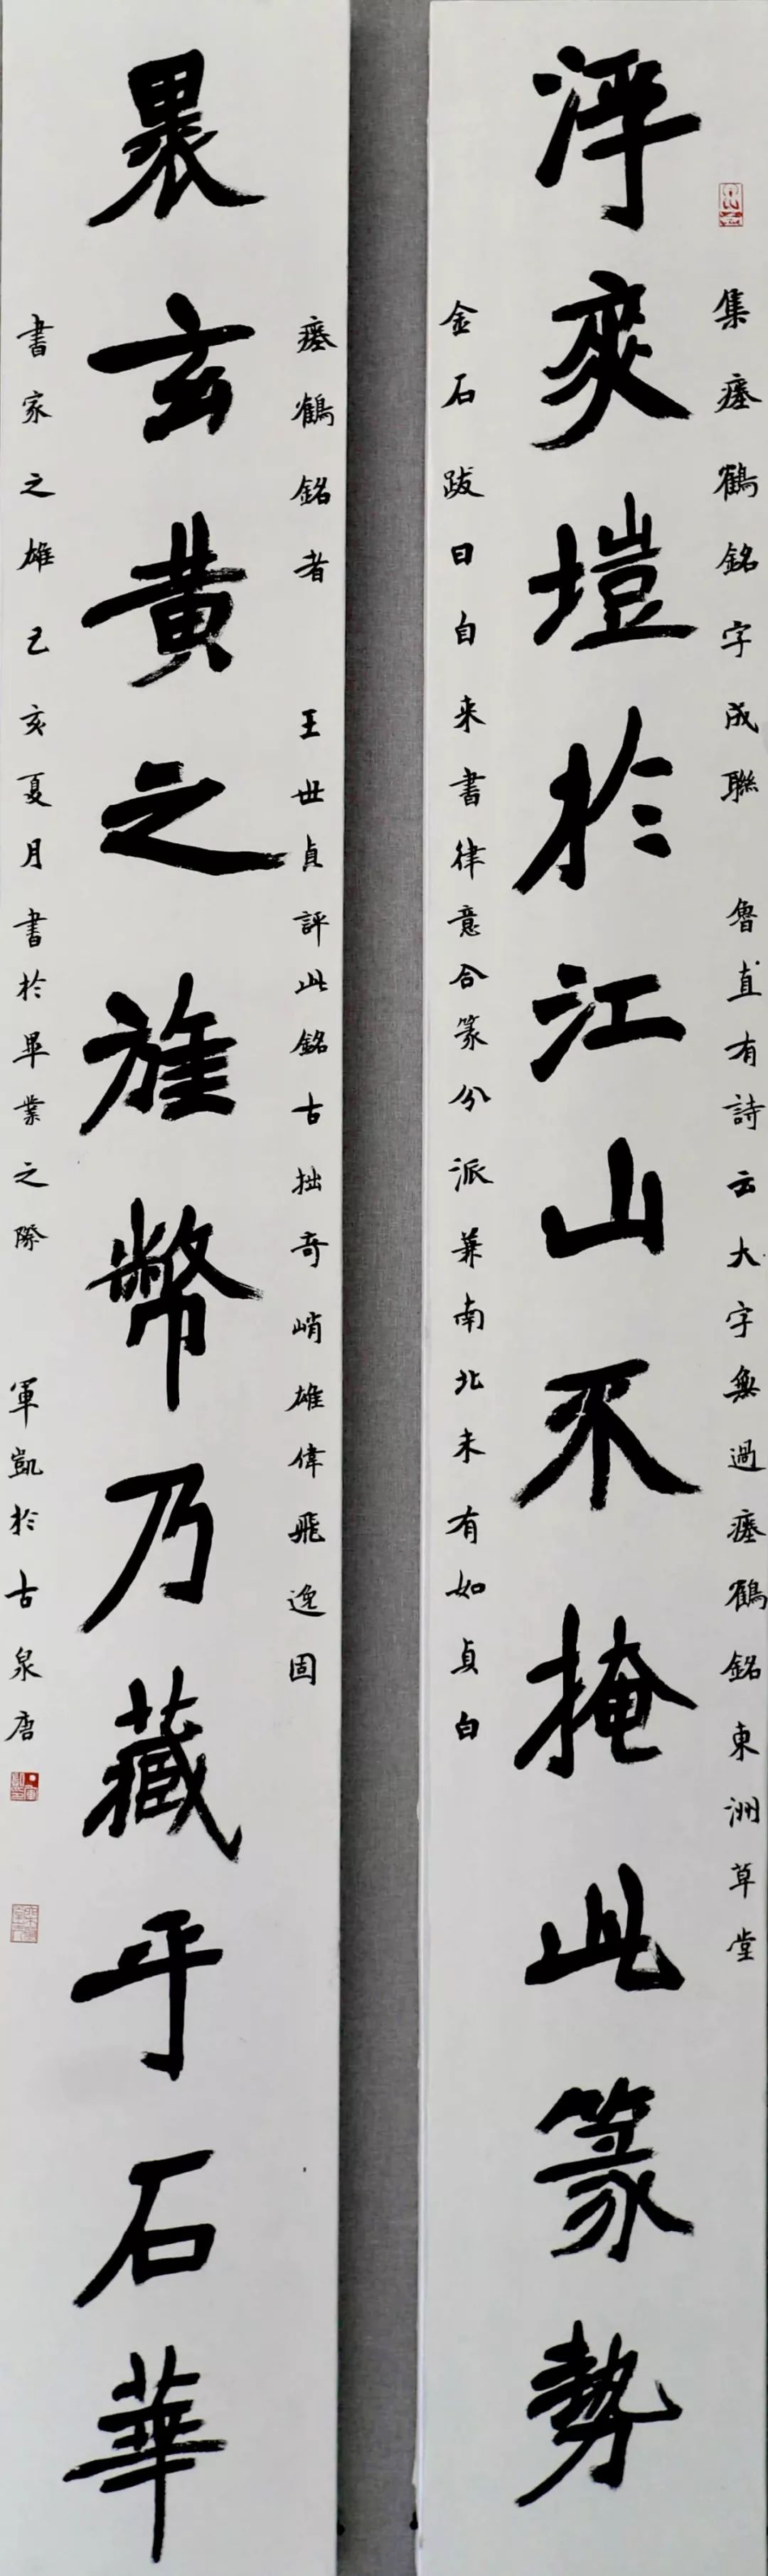 集瘞鶴銘字成聯 魯直有詩云大字無過瘞鶴銘東洲草堂
浮爽塏於江山不掩此篆勢
金石跋曰自来書律意合篆分派兼南北未有如貞白
瘞鶴銘者 王世貞評此銘古拙奇峭雄偉飛逸固
裹玄黄之旌幣乃藏乎石華
書家之雄 己亥夏月書於畢業之際 軍凱於古泉唐